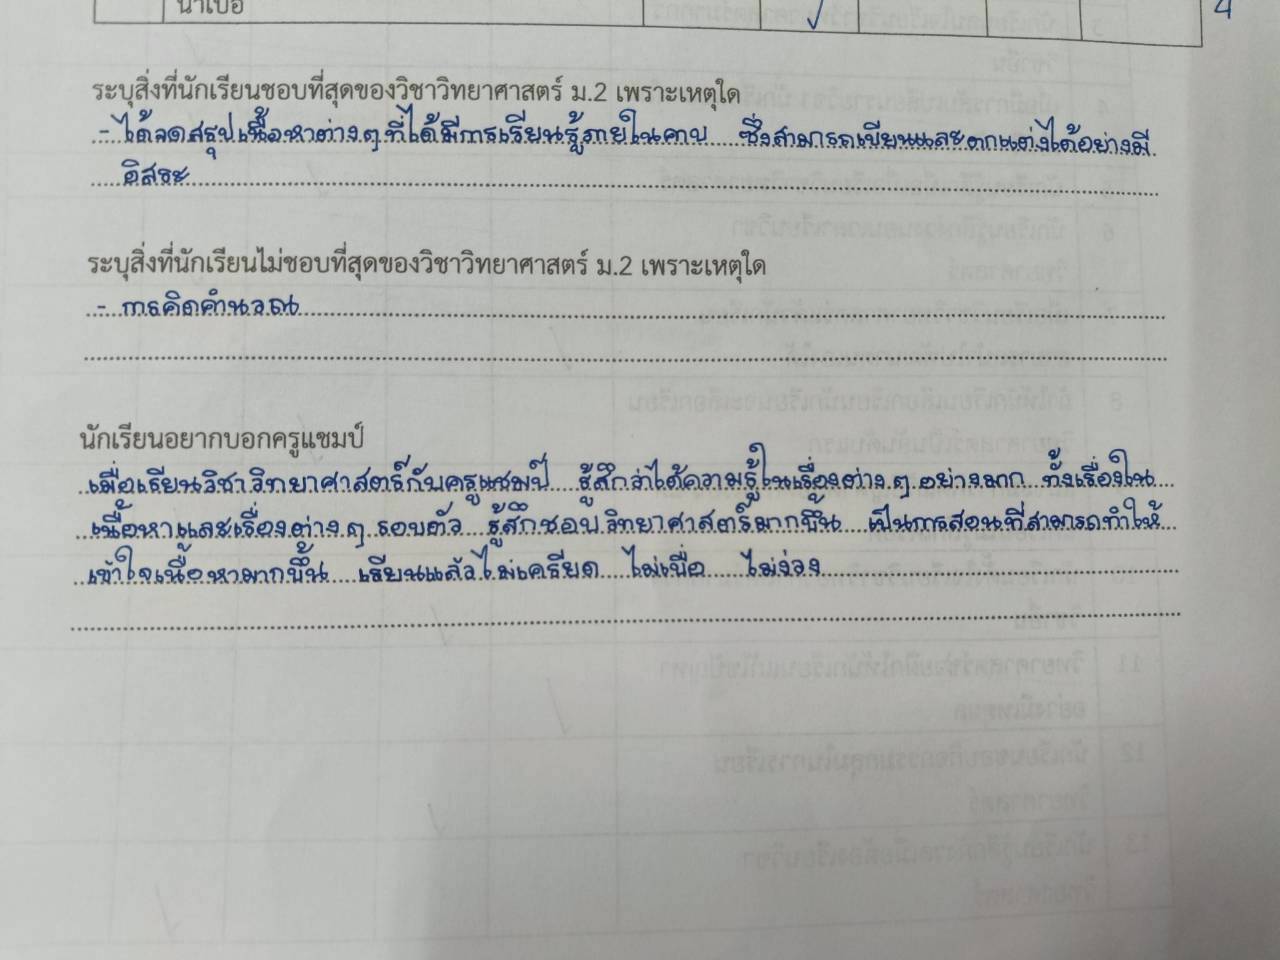 น่าเบื่อ
4
ระบุสิ่งที่นักเรียนชอบที่สุดของวิชาวิทยาศาสตร์ ม.2 เพราะเหตุใด
- ได้จดสรุปเนื้อหาต่างๆ ที่ได้มีการเรียนรู้ภายในคาบ ซึ่งสามารถเขียนและตกแต่งได้อย่างมี
อิสระ
ระบุสิ่งที่นักเรียนไม่ชอบที่สุดของวิชาวิทยาศาสตร์ ม.2 เพราะเหตุใด
- การคิดคำนวณ
นักเรียนอยากบอกครูแชมป์
เมื่อเรียนวิชาวิทยาศาสตร์กับครูแชมป์ รู้สึกว่าได้ความรู้ในเรื่องต่างๆ อย่างมาก ทั้งเรื่องใน
เนื้อหาและเรื่องต่างๆ รอบตัว รู้สึกชอบวิทยาศาสตร์มากขึ้น เป็นการสอนที่สามารถทำให้
เข้าใจเนื้อหามากขึ้น เรียนแล้วไม่เครียด ไม่เบื่อ ไม่ง่วง